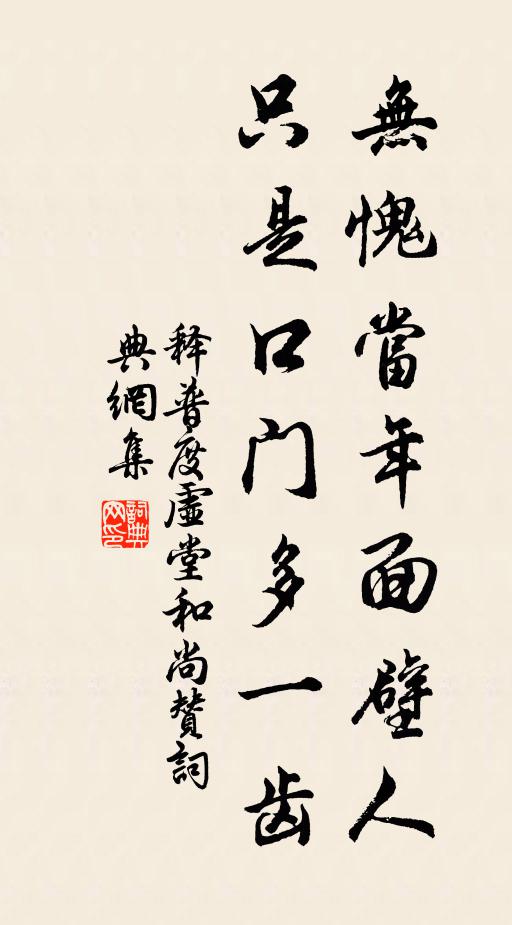 無愧當年面壁人
只是口门多一齿
释普度虛堂和尚贊詞
典網集
詞典网印